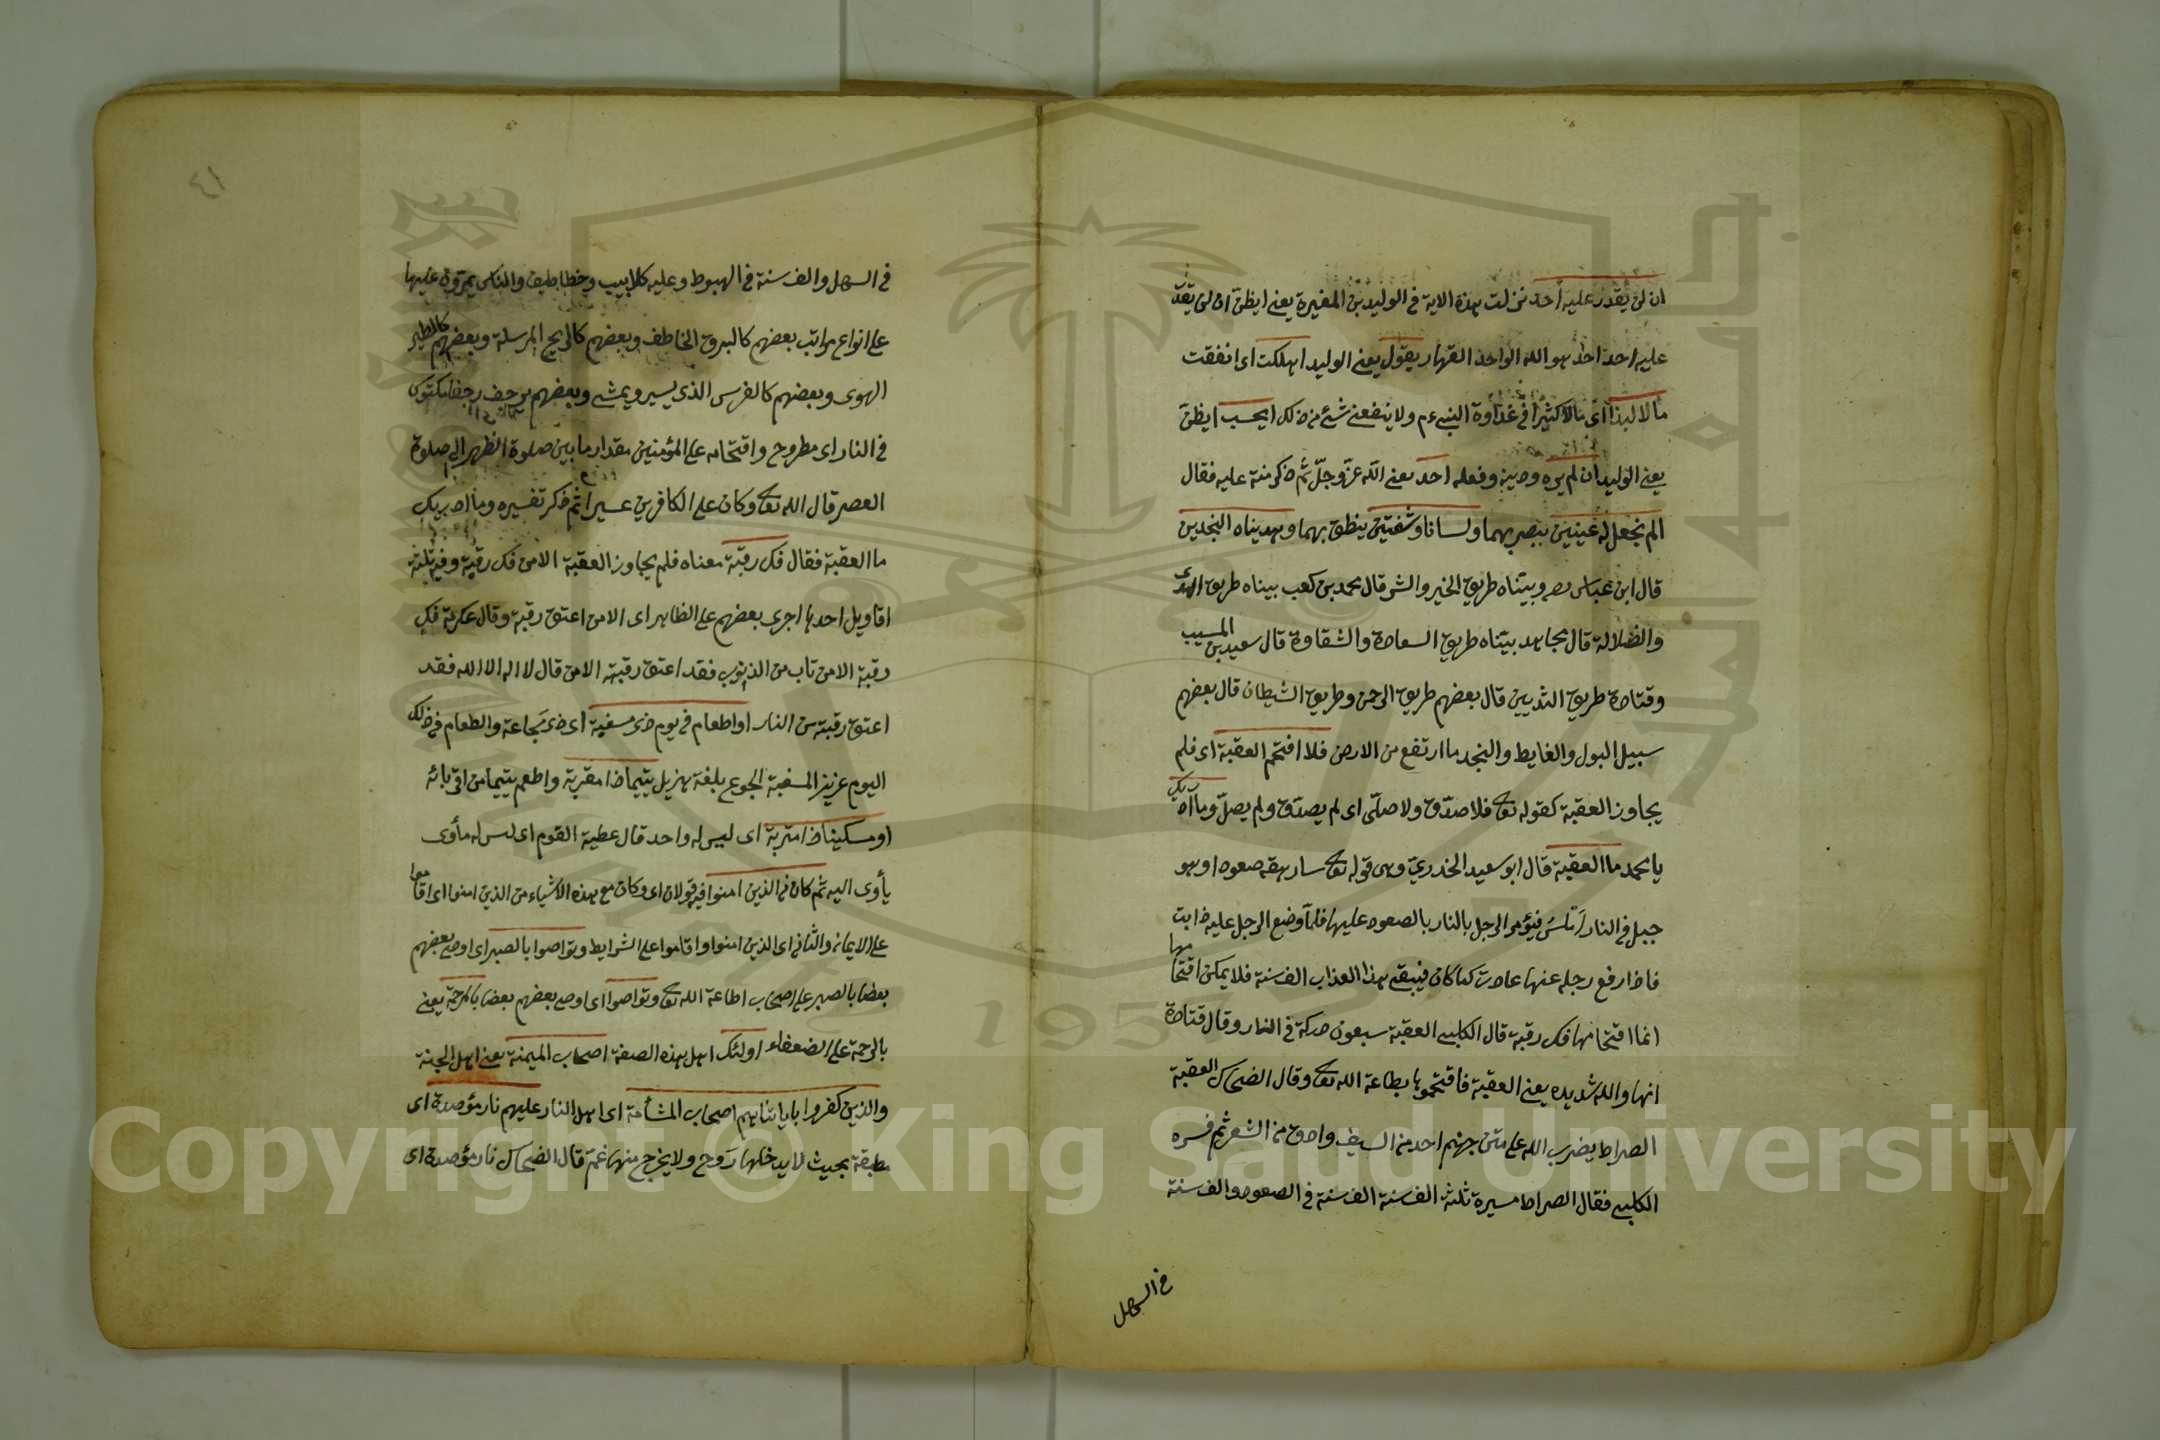 ان لن يقدر عليه احد نزلت هذه الاية في الوليد بن المغيرة يعني ايظن ان لن يقد
عليه احد احد هو الله الواحد القهار يقول يعني الوليد اهلكت اى انفقت
مالا لبدا اى مالا كثيرا في عداوة النبي ءم ولا ينفعني شئ من ذلك ايحسب ايظن
يعني الوليد ان لم يره وصيته وفعله احد يعني الله عز وجل ثم ذكر منته عليه فقال
الم نجعل له عينين يبصر بهما ولسانا وشفتين ينطق بهما وهديناه النجدين
قال ابن عباس رضي وبيناه طريق الخير والشر قال محمد بن كعب بيناه طريق الهدى
والضلالة قال مجاهد بيناه طريق السعادة والشقاوة قال سعيد بن المسيب
وقتادة طريق الثديين قال بعضهم طريق الرحمن وطريق الشيطان قال بعضهم
سبيل البول والغايط والنجد ما ارتفع من الارض فلا اقتحم العقبة اى فلم
يجاوز العقبة كقوله تعالى فلا صدق ولا صلى اى لم يصدق ولم يصل وما ادريك
يا محمد ما العقبة قال ابو سعيد الخدري وهى قوله تعالى سارهقه صعودا وهو
جبل في النار املس فيؤمر الرجل بالنار بالصعود عليها فلما وضع الرجل عليه ذابت
فاذا رفع رجله عنها عادت كما كان فيبقى بهذا العذاب الف سنة فلا يمكن اقتحامها
انما اقتحامها فك رقبة قال الكلبي العقبة سبعون دركة في النار وقال قتادة
انها والله شديده يعني العقبة فاقتحموها بطاعة الله تعالى وقال الضحاك العقبة
الصراط يضرب الله على متن جهنم احد من السيف وادق من الشعر ثم فسره
الكلبي فقال الصراط مسيرة ثلثة الف سنة الف سنة في الصعود والف سنة
في السهل
٤١
في السهل والف سنة في الهبوط وعليه كلاليب وخطاطيف والناس يمرون عليها
على انواع مراتب بعضهم كالبروق الخاطف وبعضهم كالريح المرسلة وبعضهم كالطير
الهوى وبعضهم كالفرس الذى يسير ويمشى وبعضهم يرجف رجفا
في النار اى مطروح واقتحامه على المؤمنين مقدار ما بين صلوة الظهر الى صلوة
العصر قال الله تعالى وكان على الكافرين عسيرا ثم ذكر تفسيره وما ادريك
ما العقبة فقال فك رقبة معناه فلم يجاوز العقبة الا من فك رقبة وفيه ثلثة
اقاويل احدها اجرى بعضهم على الظاهر اى الا من اعتق رقبة وقال عكرمة فك
رقبة الا من تاب من الذنوب فقد اعتق رقبته الا من قال لا اله الا الله فقد
اعتق رقبته من النار او اطعام في يوم ذى مسغبة اى ذى مجاعة والطعام في ذلك
اليوم عزيز المسغبة الجوع بلغة هزيل يتيما ذا مقربة واطعم يتيما من اقربائه
او مسكينا ذا متربة اى ليس له واحد قال عطية القوم اى ليس له مأوى
يأوى اليه ثم كان في الذين امنوا فيه قولان اى وكان مع هذه الاشياء من الذين امنوا اى اقاموا
على الايمان والثاني اى الذين امنوا واقاموا على الشرايط وتواصوا بالصبر اى اوصى بعضهم
بعضا بالصبر على اصحاب اطاعة الله تعالى وتواصوا اى اوصى بعضهم بعضا بالمرحمة يعني
بالرحمة على الضعفاء اولئك اهل هذه الصفة اصحاب الميمنة يعني اهل الجنة
والذين كفروا باياتنا هم اصحاب المشأمة اى اهل النار عليهم نار مؤصدة اى
مطبقة بحيث لا يدخلها روح ولا يخرج منها غم قال الضحاك نار مؤصدة اى
Copyright © King Saud University
1957